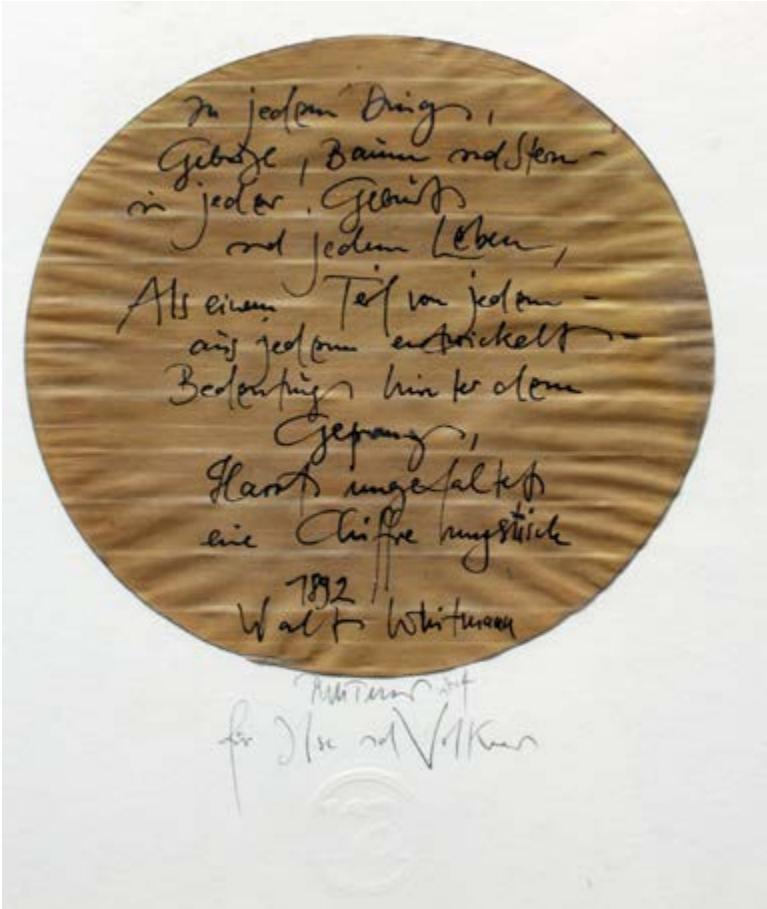 In jedem Ding,
Gebirge, Baum und Stern -
in jeder Geburt
und jedem Leben,
Als einem Teil von jedem -
aus jedem entwickelt -
Bedeutung hinter dem
Gepräng,
Harrt ungefaltet
eine Chiffre mystisch
1892
Walt Whitmann
für Ilse und Volkmar